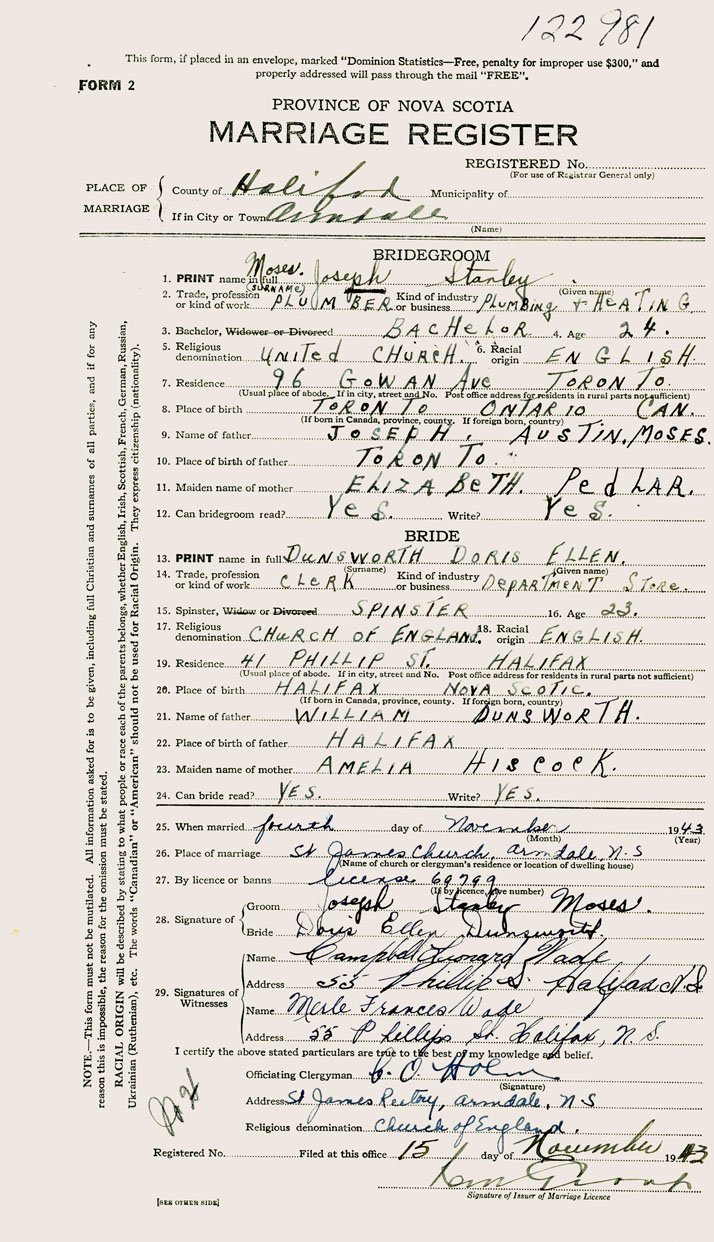 122981
This form, if placed in an envelope, marked "Dominion Statistics—Free, penalty for improper use $300," and
properly addressed will pass through the mail "FREE".
FORM 2
PROVINCE OF NOVA SCOTIA
MARRIAGE REGISTER
REGISTERED No.
(For use of Registrar General only)
PLACE OF MARRIAGE
County of Halifax Municipality of
If in City or Town Armdale
(Name)
BRIDEGROOM
1. PRINT name in full Moses. Joseph Stanley
(SURNAME) (Given name)
2. Trade, profession or kind of work PLUMBER Kind of industry or business PLUMBING + HEATING
3. Bachelor, Widower or Divorced BACHELOR 4. Age 24.
5. Religious denomination UNITED CHURCH. 6. Racial origin ENGLISH
7. Residence 96 GOWAN Ave TORONTO.
(Usual place of abode. If in city, street and No. Post office address for residents in rural parts not sufficient)
8. Place of birth TORONTO ONTARIO CAN.
(If born in Canada, province, county. If foreign born, country)
9. Name of father JOSEPH. AUSTIN. MOSES.
10. Place of birth of father TORONTO.
11. Maiden name of mother ELIZABETH. PedLAR.
12. Can bridegroom read? Yes. Write? Yes.
BRIDE
13. PRINT name in full DUNSWORTH DORIS ELLEN.
(Surname) (Given name)
14. Trade, profession or kind of work CLERK Kind of industry or business DEPARTMENT STORE.
15. Spinster, Widow or Divorced SPINSTER 16. Age 23.
17. Religious denomination CHURCH OF ENGLAND. 18. Racial origin ENGLISH.
19. Residence 41 PHILLIP ST. HALIFAX
(Usual place of abode. If in city, street and No. Post office address for residents in rural parts not sufficient)
20. Place of birth HALIFAX NOVA SCOTIC.
(If born in Canada, province, county. If foreign born, country)
21. Name of father WILLIAM DUNSWORTH.
22. Place of birth of father HALIFAX
23. Maiden name of mother AMELIA HISCOCK.
24. Can bride read? YES. Write? YES.
25. When married fourth day of November 1943
(Month) (Year)
26. Place of marriage St James Church, Armdale, N.S
(Name of church or clergyman's residence or location of dwelling house)
27. By licence or banns license 69799
(If by licence, give number)
28. Signature of
Groom Joseph Stanley Moses.
Bride Doris Ellen Dunsworth.
29. Signatures of Witnesses
Name Campbell Leonard Wade
Address 55 Phillip St. Halifax N.S
Name Merle Frances Wade
Address 55 Phillips St. Halifax, N.S.
I certify the above stated particulars are true to the best of my knowledge and belief.
Officiating Clergyman Holm
(Signature)
Address St James Rectory, Armdale, N S
Religious denomination Church of England.
Registered No. Filed at this office 15 day of November 1943
Signature of Issuer of Marriage Licence
[SEE OTHER SIDE]
NOTE.—This form must not be mutilated. All information asked for is to be given, including full Christian and surnames of all parties, and if for any
reason this is impossible, the reason for the omission must be stated.
RACIAL ORIGIN will be described by stating to what people or race each of the parents belongs, whether English, Irish, Scottish, French, German, Russian,
Ukrainian (Ruthenian), etc. The words "Canadian" or "American" should not be used for Racial Origin. They express citizenship (nationality).